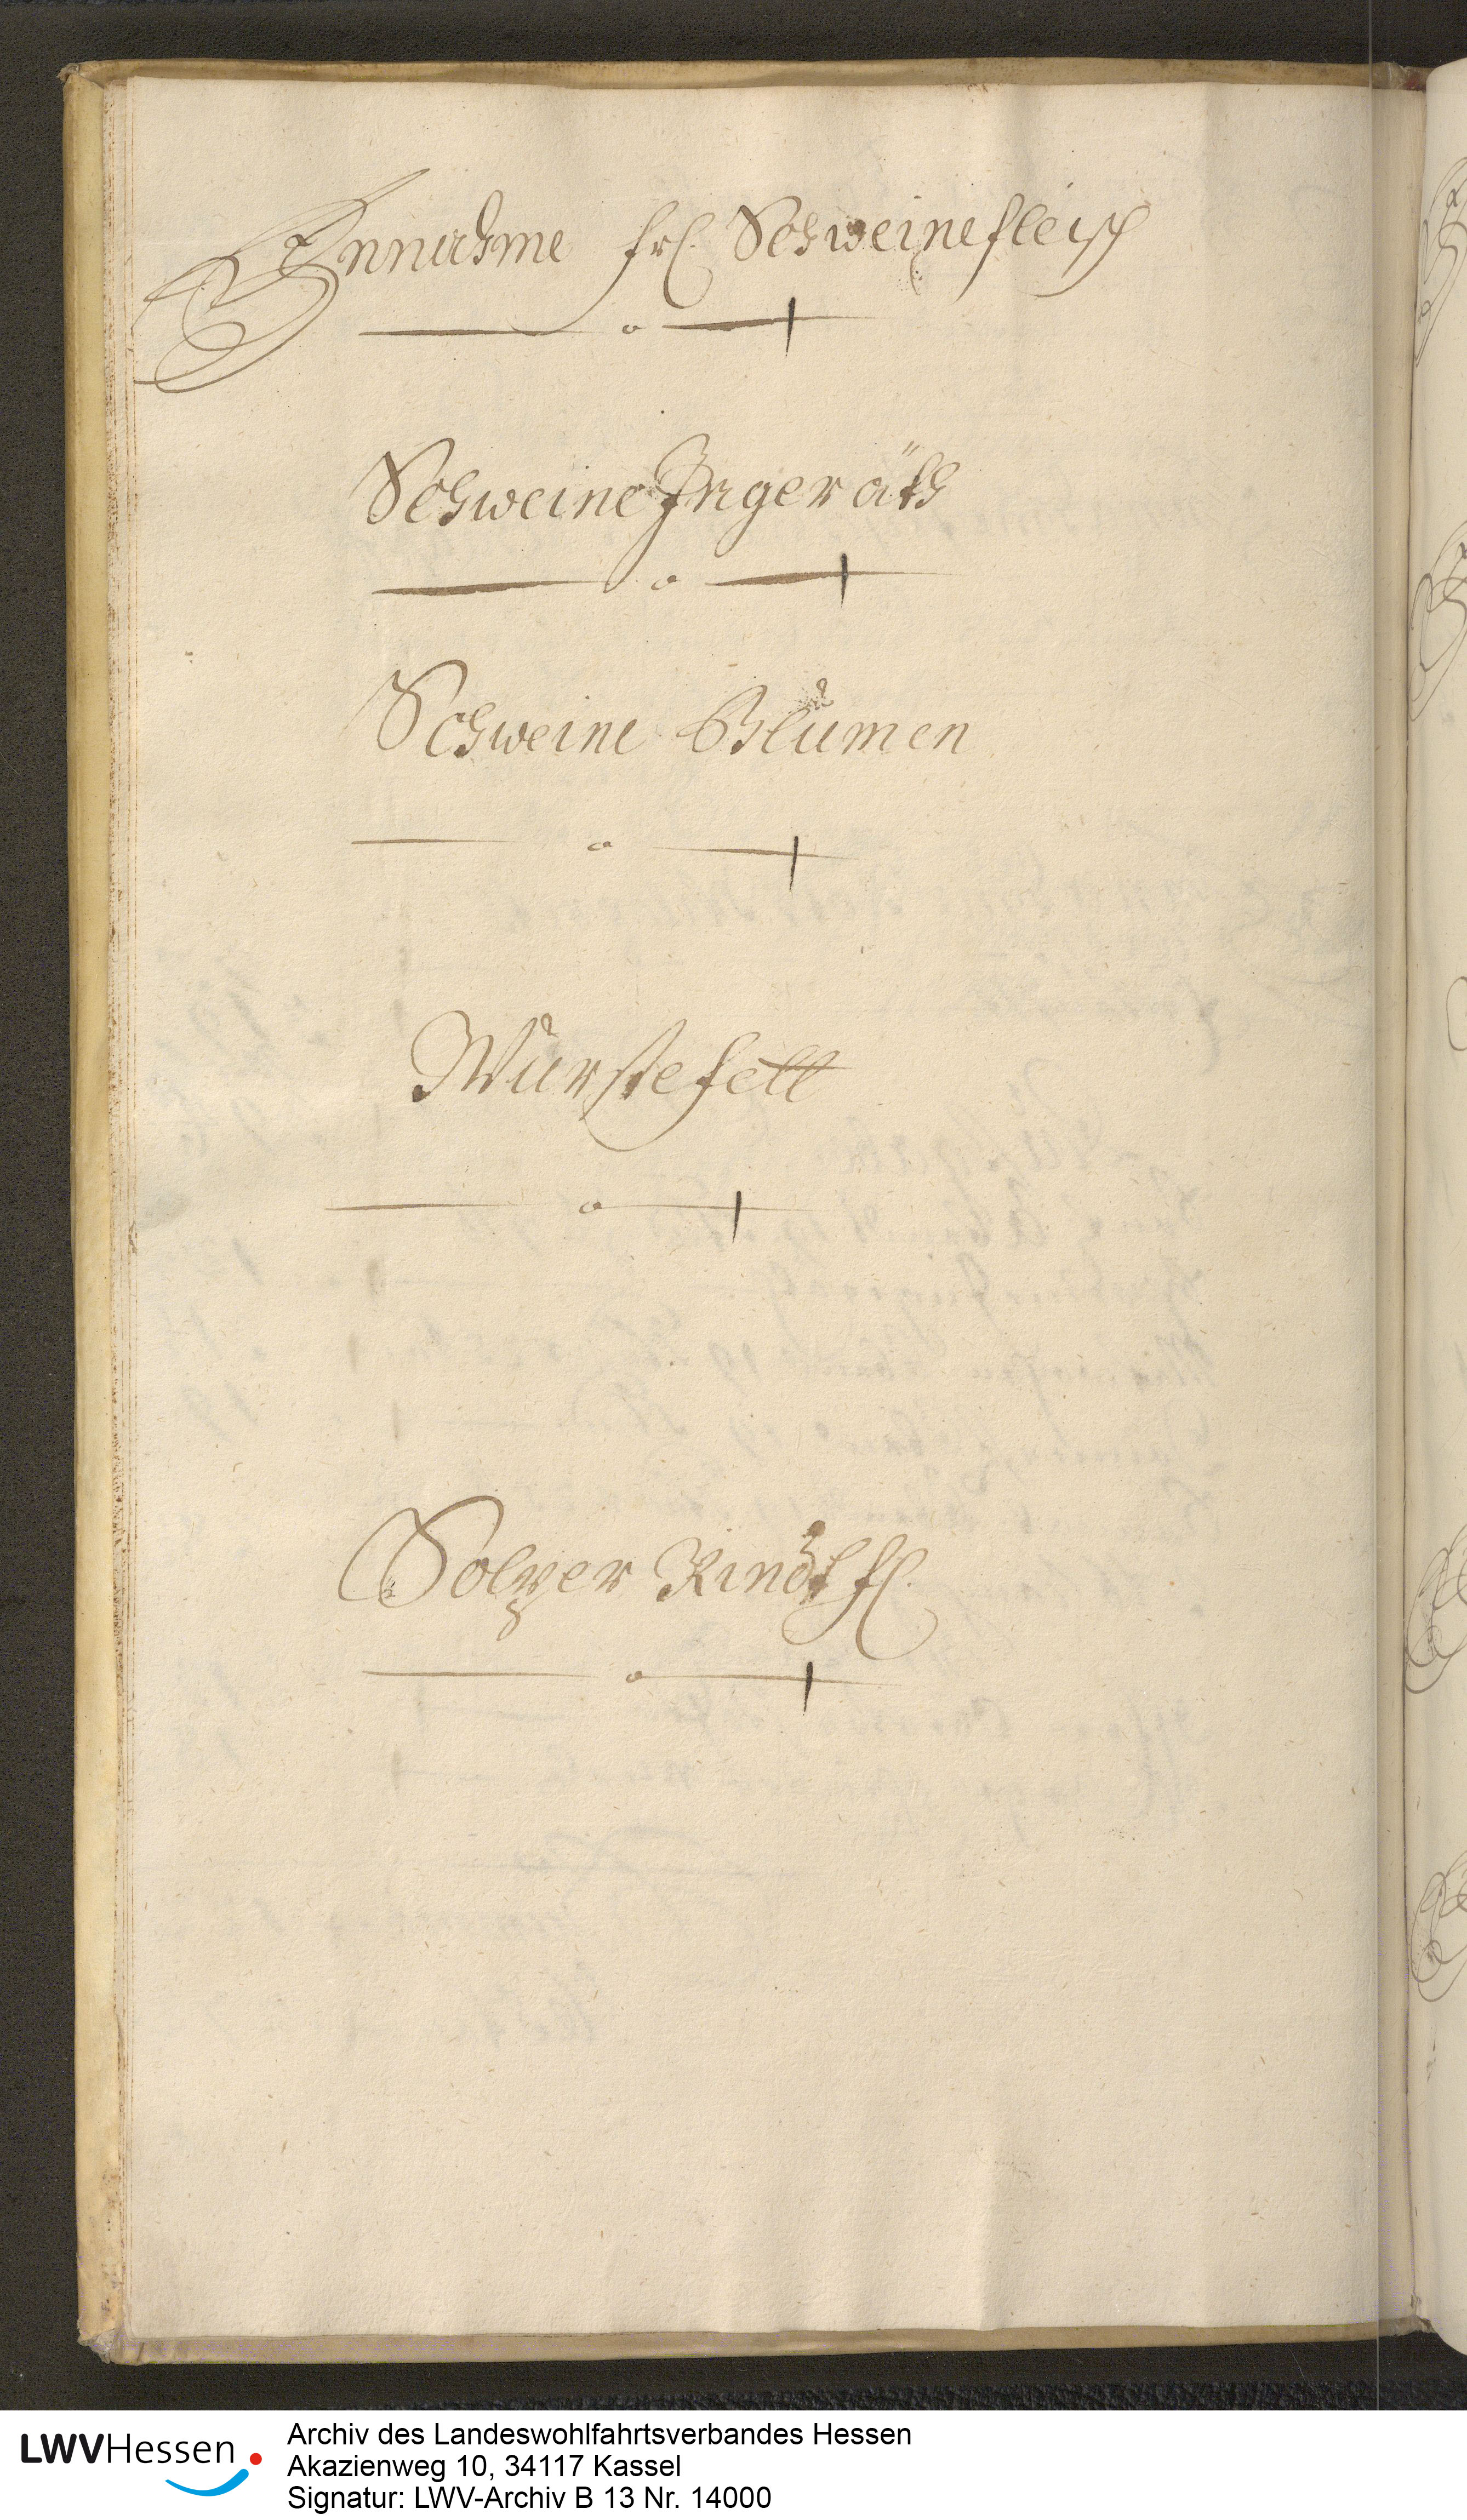 Innahme frl. Schweinefleisch
— o —
Schweine Ingeräth
— o —
Schweine Blumen
— o —
Wurstefett
— o —
Solper Rindtfl.
— o —
LWVHessen
Archiv des Landeswohlfahrtsverbandes Hessen
Akazienweg 10, 34117 Kassel
Signatur: LWV-Archiv B 13 Nr. 14000